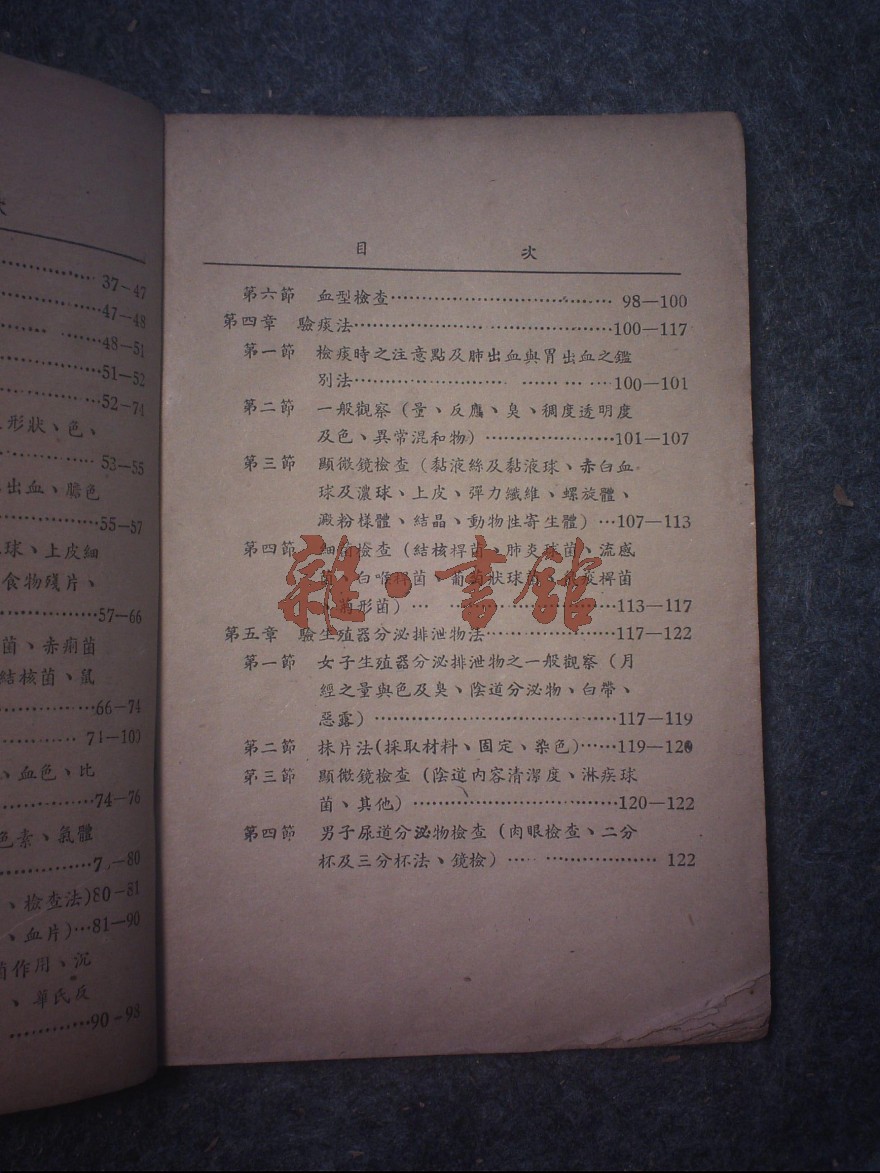 次
37—47
47—48
48—51
51—52
52—74
形狀、色、
53—55
出血、膽色
55—57
球、上皮細
食物殘片、
57—66
菌、赤痢菌
結核菌、鼠
66—74
、血色、比
74—76
色素、氣體
—80
、檢查法)80—81
、血片)…81—90
菌作用、沉
、華氏反
90—98
目 次
第六節 血型檢查……98—100
第四章 驗痰法……100—117
第一節 檢痰時之注意點及肺出血與胃出血之鑑
別法……100—101
第二節 一般觀察（量、反應、臭、稠度透明度
及色、異常混和物）……101—107
第三節 顯微鏡檢查（黏液絲及黏液球、赤白血
球及濃球、上皮、彈力纖維、螺旋體、
澱粉樣體、結晶、動物性寄生體）…107—113
第四節 細菌檢查（結核桿菌、肺炎球菌、流感
菌、白喉桿菌、葡萄狀球菌、炭疽桿菌
菌形菌）……113—117
第五章 驗生殖器分泌排泄物法……117—122
第一節 女子生殖器分泌排泄物之一般觀察（月
經之量與色及臭、陰道分泌物、白帶、
惡露）……117—119
第二節 抹片法(採取材料、固定、染色)……119—120
第三節 顯微鏡檢查（陰道內容清潔度、淋疾球
菌、其他）……120—122
第四節 男子尿道分泌物檢查（肉眼檢查、二分
杯及三分杯法、鏡檢）……122
雜·書館